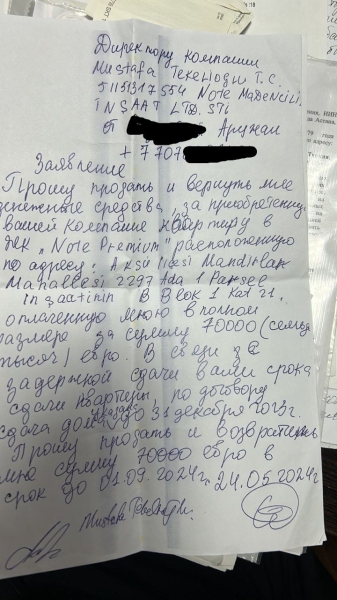 Директору компании
Mustafa Tekelioglu T.C.
51151317554 Note Madencilik
INŞAAT LTD. STi
от Аружан
+ 7707
Заявление
Прошу продать и вернуть мне
денежные средства, за приобретенную
вашей компание квартиру в
ЖК „Note Premium" расположенную
по адресу: Aksu ilçesi Mandırlar
Mahallesi 2297 Ada 1 Parsel
inşaatinin B Blok 1 Kat 21,
оплаченную мною в полном
размере за сумму 70000 (семьдесят
тысяч) евро. В связи з с
задержкой сдачи вами срока
сдачи квартиры, по договору
сдача дома до 31 декабря 2023г.
Прошу продать и возвратить
мне сумму 70000 евро в
срок до 01.09.2024г. 24.05.2024г